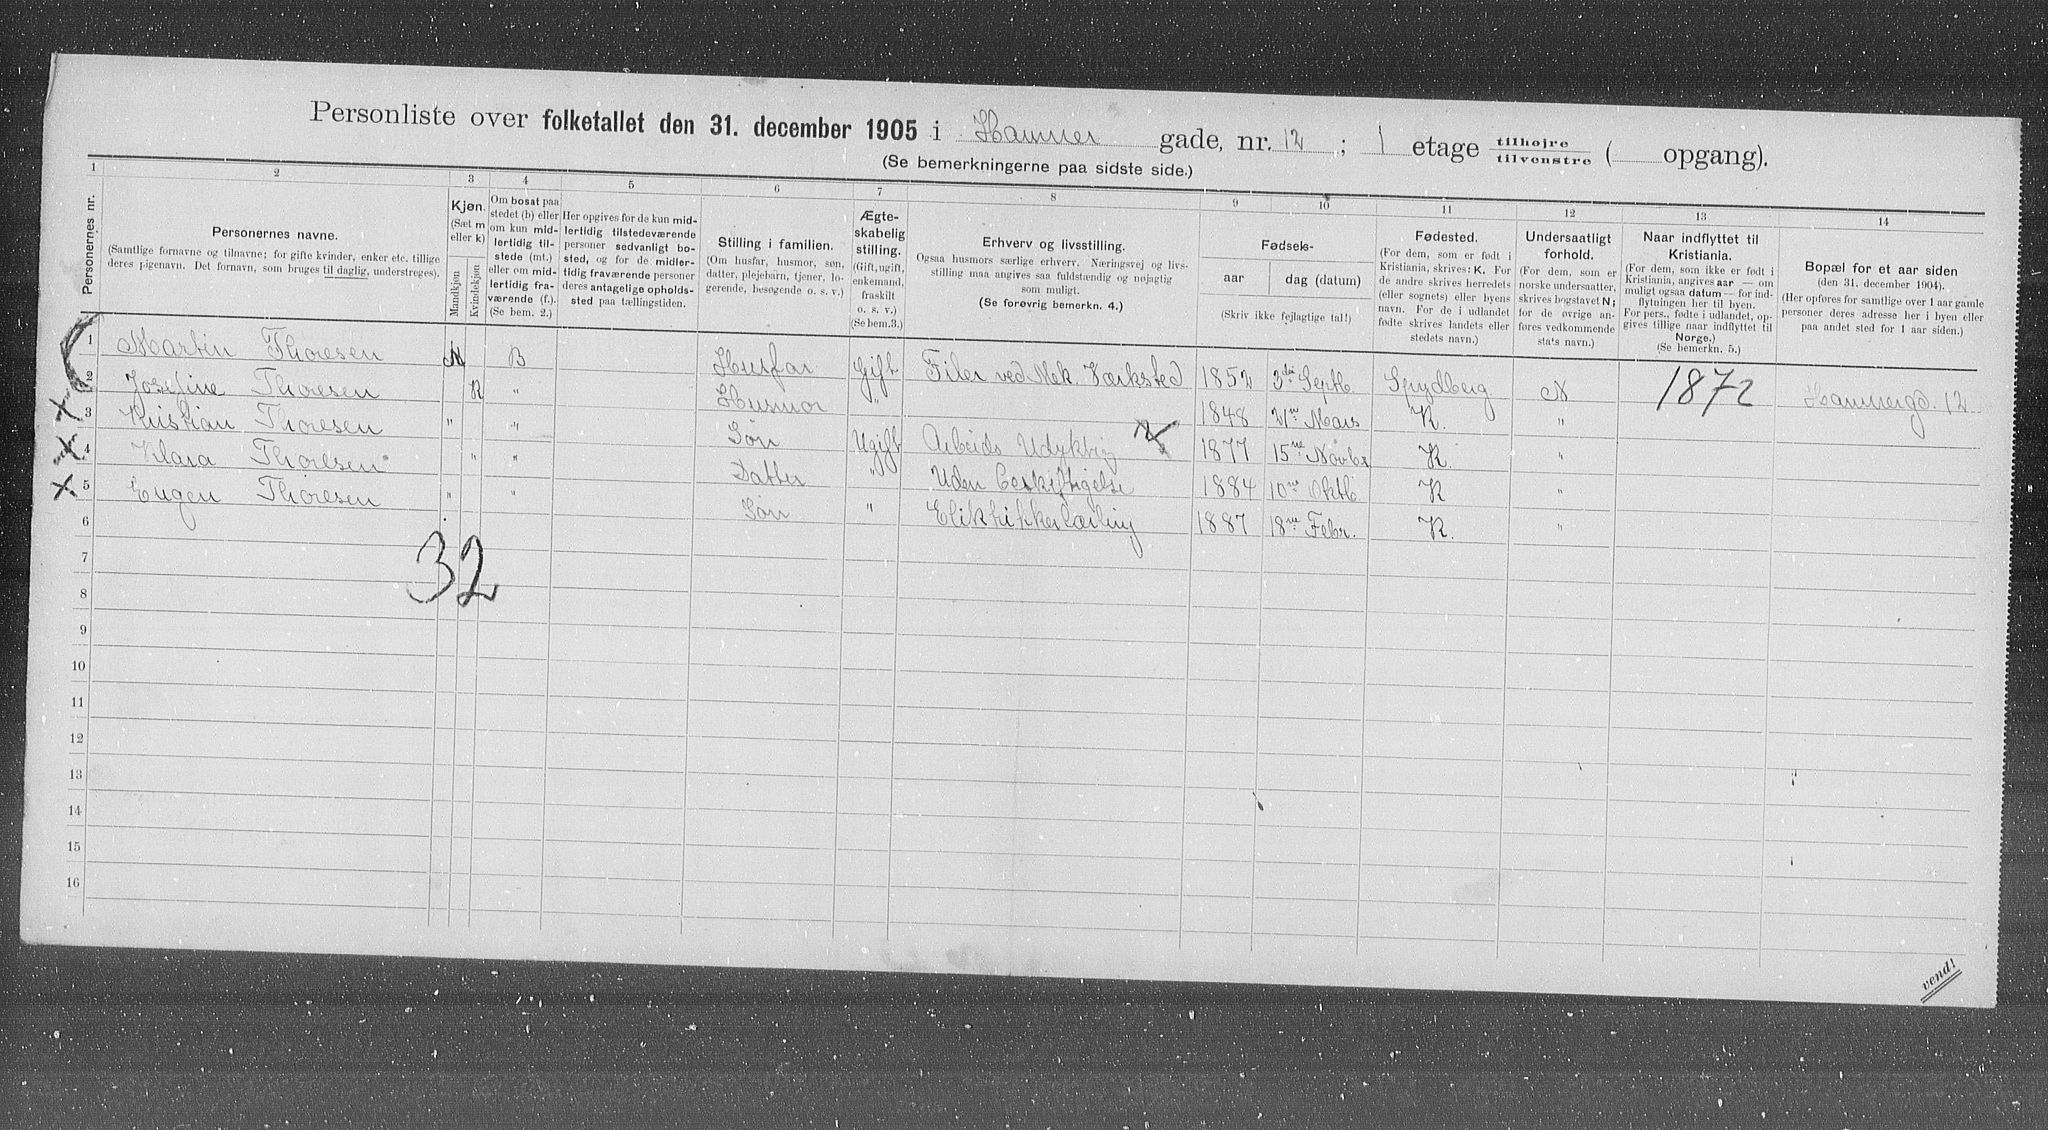 Personliste over folketallet den 31. december 1905 i Hammer gade, nr. 12 ; 1 etage tilhøjre tilvenstre ( opgang).
(Se bemerkningerne paa sidste side.)
1 2 3 4 5 6 7 8 9 10 11 12 13 14
Personernes nr.
Personernes navne.
(Samtlige fornavne og tilnavne; for gifte kvinder, enker etc. tillige
deres pigenavn. Det fornavn, som bruges til daglig, understreges).
Kjøn.
(Sæt m
eller k)
Mandkjøn
Kvindekjøn
Om bosat paa
stedet (b) eller
om kun mid-
lertidig til-
stede (mt.)
eller om mid-
lertidig fra-
værende (f.).
(Se bem. 2.)
Her opgives for de kun mid-
lertidig tilstedeværende
personer sedvanligt bo-
sted, og for de midler-
tidig fraværende personer
deres antagelige opholds-
sted paa tællingstiden.
Stilling i familien.
(Om husfar, husmor, søn,
datter, plejebarn, tjener, lo-
gerende, besøgende o. s. v.)
Ægte-
skabelig
stilling.
(Gift, ugift,
enkemand,
fraskilt
o. s. v.)
(Se bem. 3.)
Erhverv og livsstilling.
Ogsaa husmors særlige erhverv. Næringsvej og livs-
stilling maa angives saa fuldstændig og nøjagtig
som muligt.
(Se forøvrig bemerkn. 4.)
Fødsels-
aar
dag (datum)
(Skriv ikke fejlagtige tal!)
Fødested.
(For dem, som er født i
Kristiania, skrives: K. For
de andre skrives herredets
(eller sognets) eller byens
navn. For de i udlandet
fødte skrives landets eller
stedets navn.)
Undersaatligt
forhold.
(For dem, som er
norske undersaatter,
skrives bogstavet N;
for de øvrige an-
føres vedkommende
stats navn.)
Naar indflyttet til
Kristiania.
(For dem, som ikke er født i
Kristiania, angives aar — om
muligt ogsaa datum — for ind-
flytningen her til byen.
For pers., fødte i udlandet, op-
gives tillige naar indflyttet til
Norge.)
(Se bemerkn. 5.)
Bopæl for et aar siden
(den 31. december 1904).
(Her opføres for samtlige over 1 aar gamle
personer deres adresse her i byen eller
paa andet sted for 1 aar siden.)
1 Martin Thoresen M B Husfar Gift Filer ved Mek. Værksted 1852 3die Septb Spydberg N 1872 Hammergd. 12
2 Josefine Thoresen K " Husmor " 1848 21ne Mars K. "
3 Kristian Thoresen " " Søn Ugift Arbeids 1877 15ne Novbr K. "
4 Klara Thoresen " " Datter " Uden Beskjeftigelse 1884 10ne Oktb K "
5 Eugen Thoresen " " Søn " 1887 18ne Febr. K. "
6
7
32
8
9
10
11
12
13
14
15
16
vend!